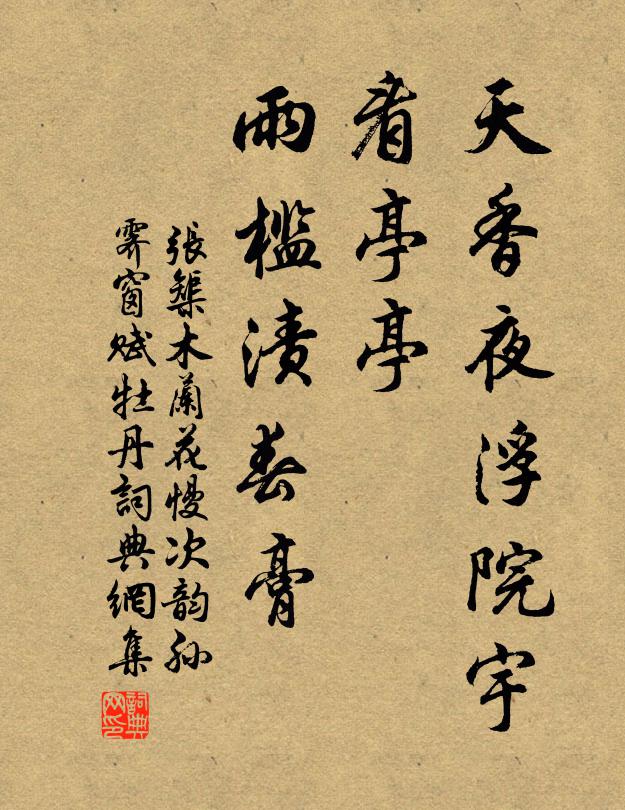 天香夜浮院宇
看亭亭
雨檻漬春膏
張榘木蘭花慢次韵孙
霁窗赋牡丹詞典網集
詞典网印